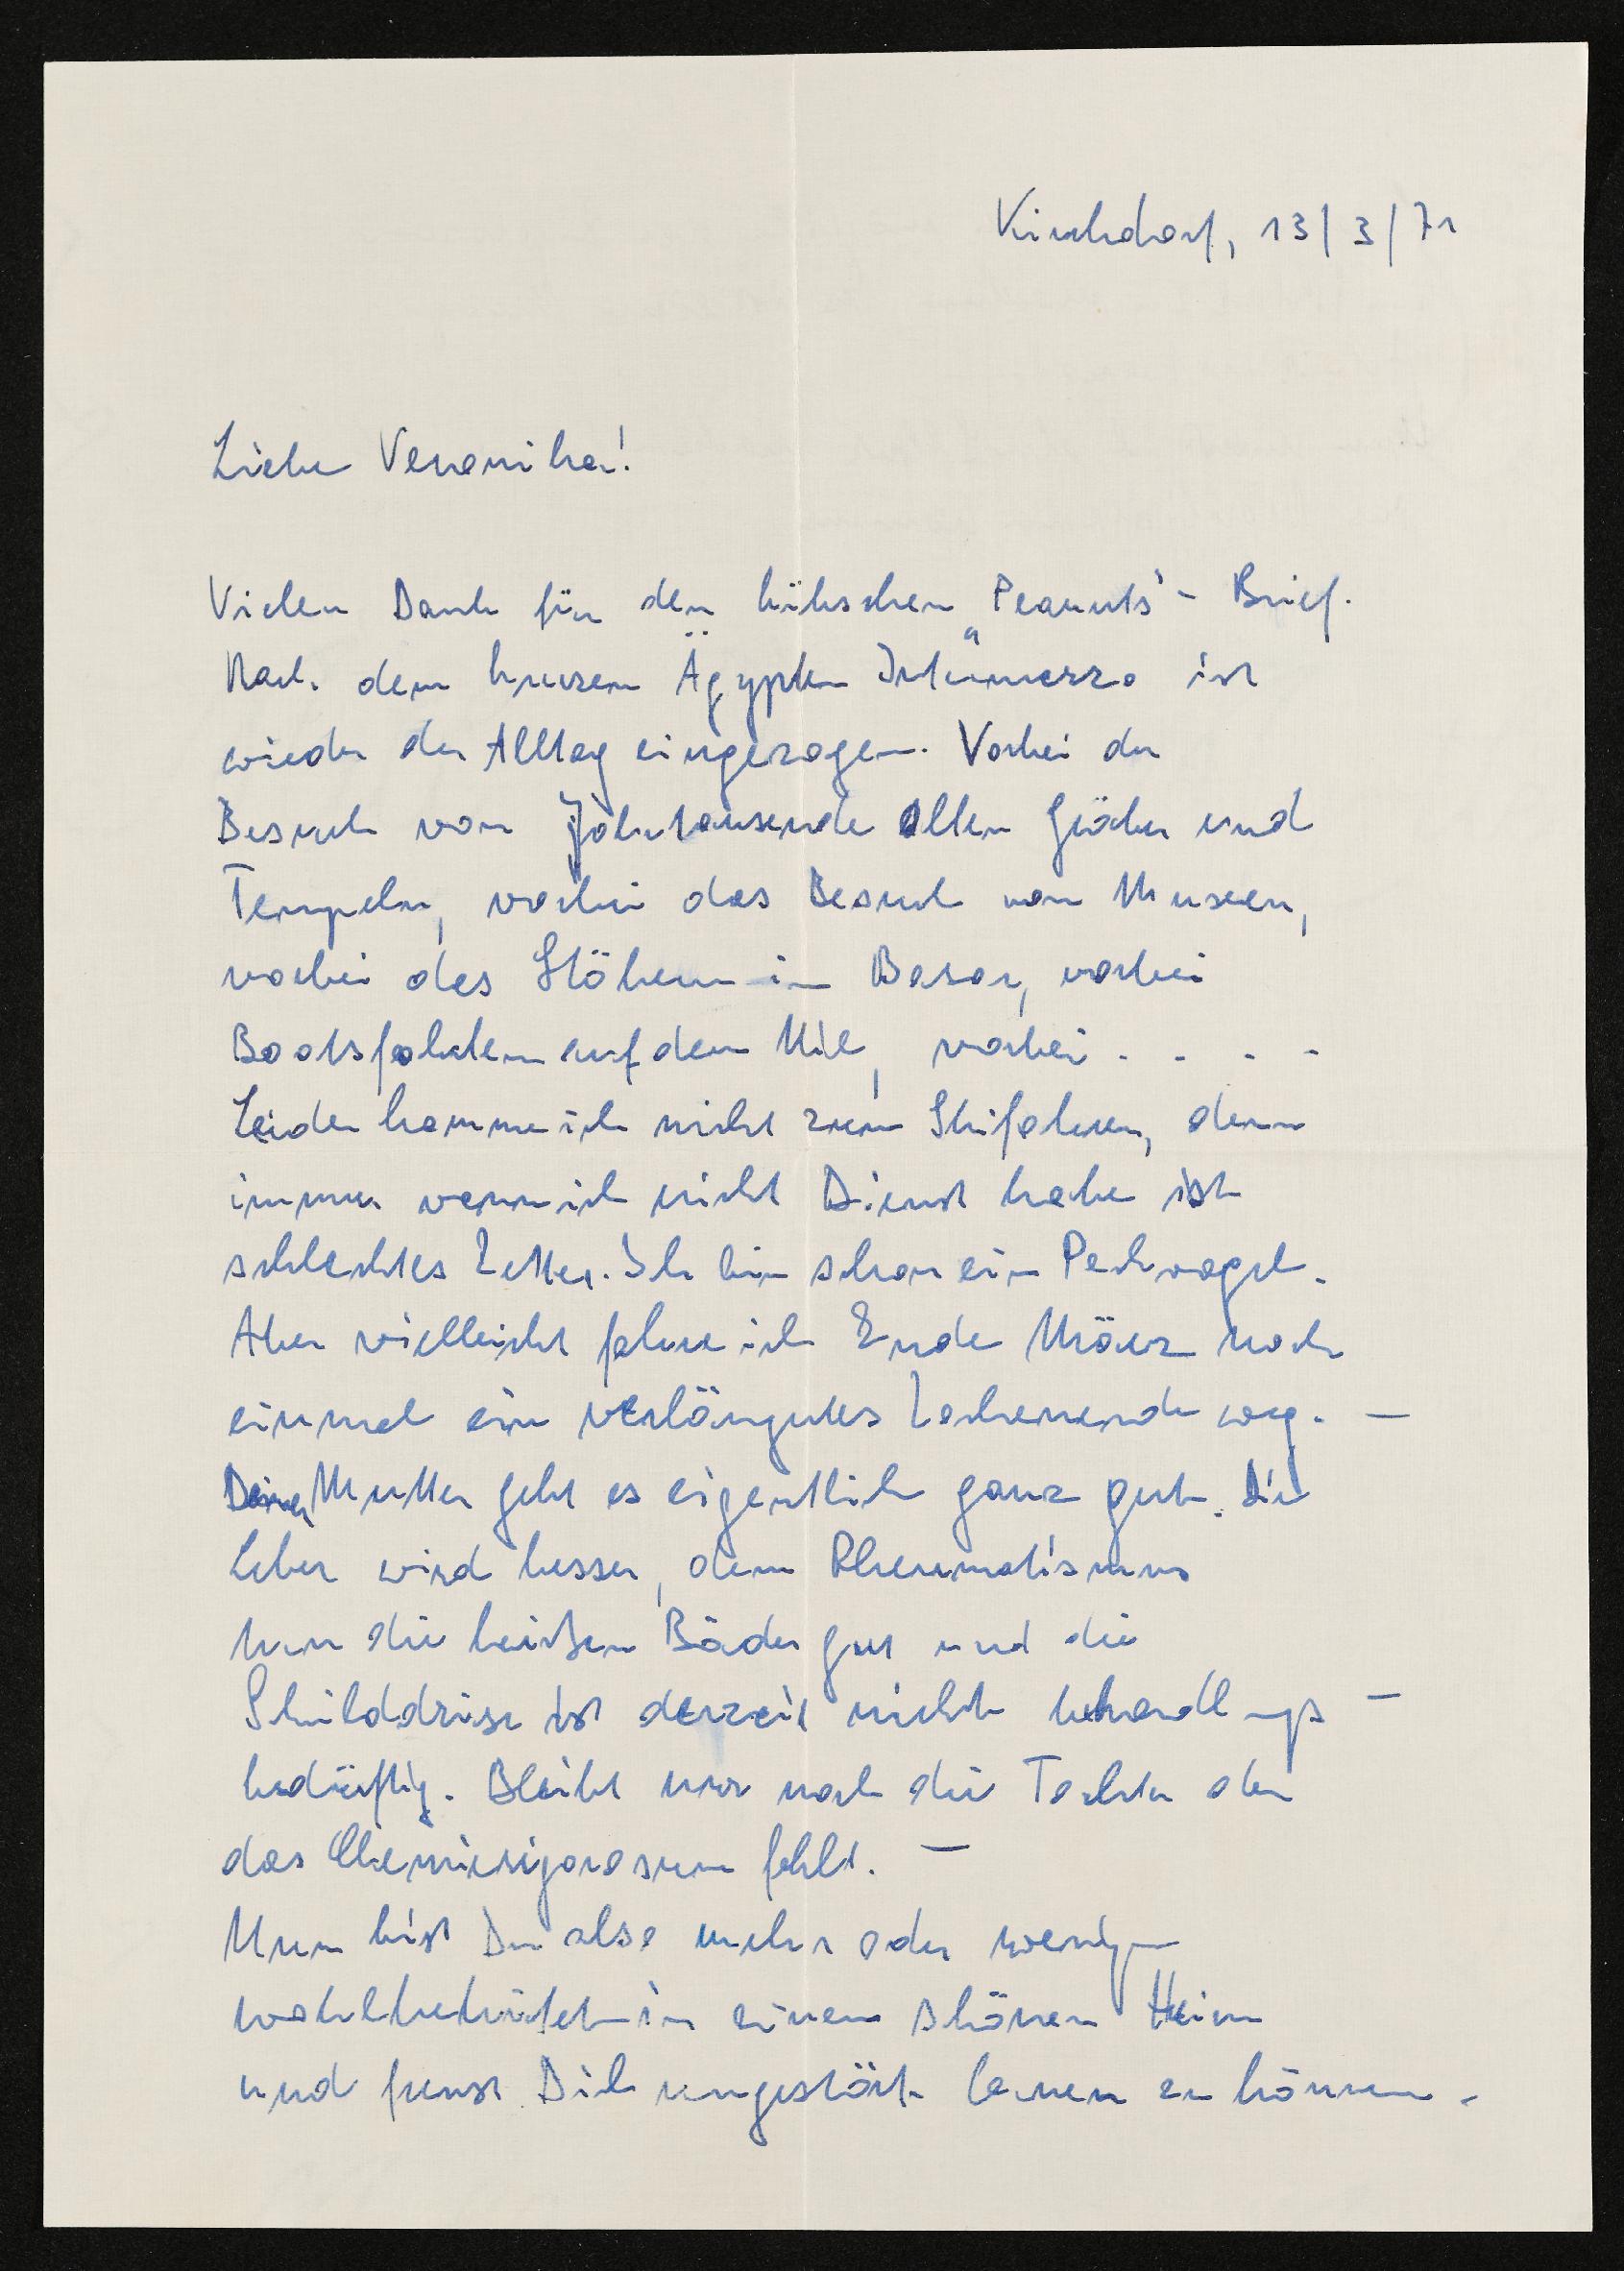 Kirchdorf, 13/3/71
Liebe Veronika!
Vielen Dank für den hübschen „Peanuts"- Brief.
Nach dem kurzen Ägypten Intermezzo ist
wieder der Alltag eingezogen. Vorbei der
Besuch von Jahrtausende alten Gräber und
Tempeln, vorbei das Besuch von Museen,
vorbei das Stöbern im Basar, vorbei
Bootsfahrten auf dem Nil, vorbei . . . .
Leider komme ich nicht zum Skifahren, denn
immer wenn ich nicht Dienst habe ist
schlechtes Wetter. Ich bin schon ein Pechvogel.
Aber vielleicht fahre ich Ende März noch
einmal ein verlängertes Wochenende weg. —
Deiner Mutter geht es eigentlich ganz gut. Die
Leber wird besser, dem Rheumatismus
tun die heißen Bäder gut und die
Schilddrüse ist derzeit nicht behandlungs -
bedürftig. Bleibt nur noch die Tochter der
das Chemieigorosum fehlt. —
Nun bist Du also mehr oder weniger
wohlbehütet in einem schönen Heim
und freust Dich ungestört lernen zu können.